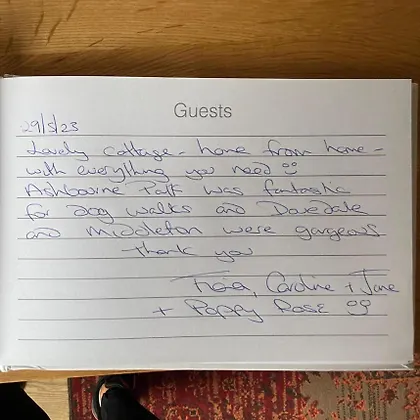 Guests
29/5/23
Lovely cottage - home from home -
with everything you need
Ashbourne Park was fantastic
for dog walks and Dovedale
and Middleton were gorgeous
Thank you
Caroline + Jane
+ Poppy Rose